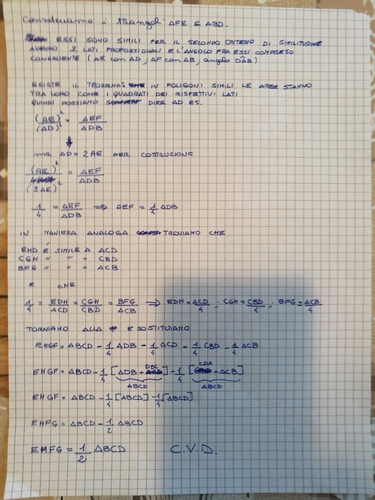 Consideriamo i triangoli AFE E ABD.
ESSI SONO SIMILI PER IL SECONDO CRITERIO DI SIMILITUDINE
AVENDO 2 LATI PROPORZIONALI E L'ANGOLO FRA ESSI COMPRESO
CONGRUENTE (AE con AD, AF con AB, angolo DÂB)
ESISTE IL TEOREMA: IN POLIGONI SIMILI LE AREE STANNO
TRA LORO COME I QUADRATI DEI RISPETTIVI LATI
QUINDI POSSIAMO DIRE AD ES.
(AE)²/(AD)² = AEF/ADB
↓
ma AD = 2AE PER COSTRUZIONE
(AE)²/(2AE)² = AEF/ADB
1/4 = AEF/ADB ⇒ AEF = 1/4 ADB
IN MANIERA ANALOGA TROVIAMO CHE
EHD È SIMILE A ACD
CGH " " " CBD
BFG " " " ACB
E CHE
1/4 = EDH/ACD = CGH/CBD = BFG/ACB ⇒ EDH = ACD/4 ; CGH = CBD/4 ; BFG = ACB/4
TORNIAMO ALLA * E SOSTITUIAMO
EHGF = ABCD - 1/4 ADB - 1/4 ACD - 1/4 CBD - 1/4 ACB
EHGF = ABCD - 1/4 [ADB + DBC] - 1/4 [CDA + ACB]
ABCD ABCD
EHGF = ABCD - 1/4 [ABCD] - 1/4 [ABCD]
EHFG = ABCD - 1/2 ABCD
EHFG = 1/2 ABCD C.V.D.